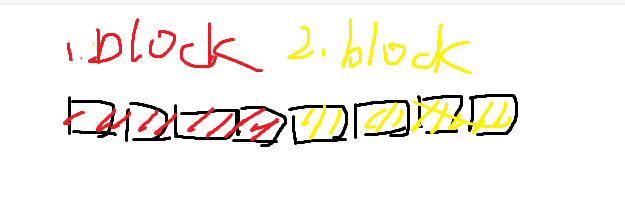 1. block 2. block